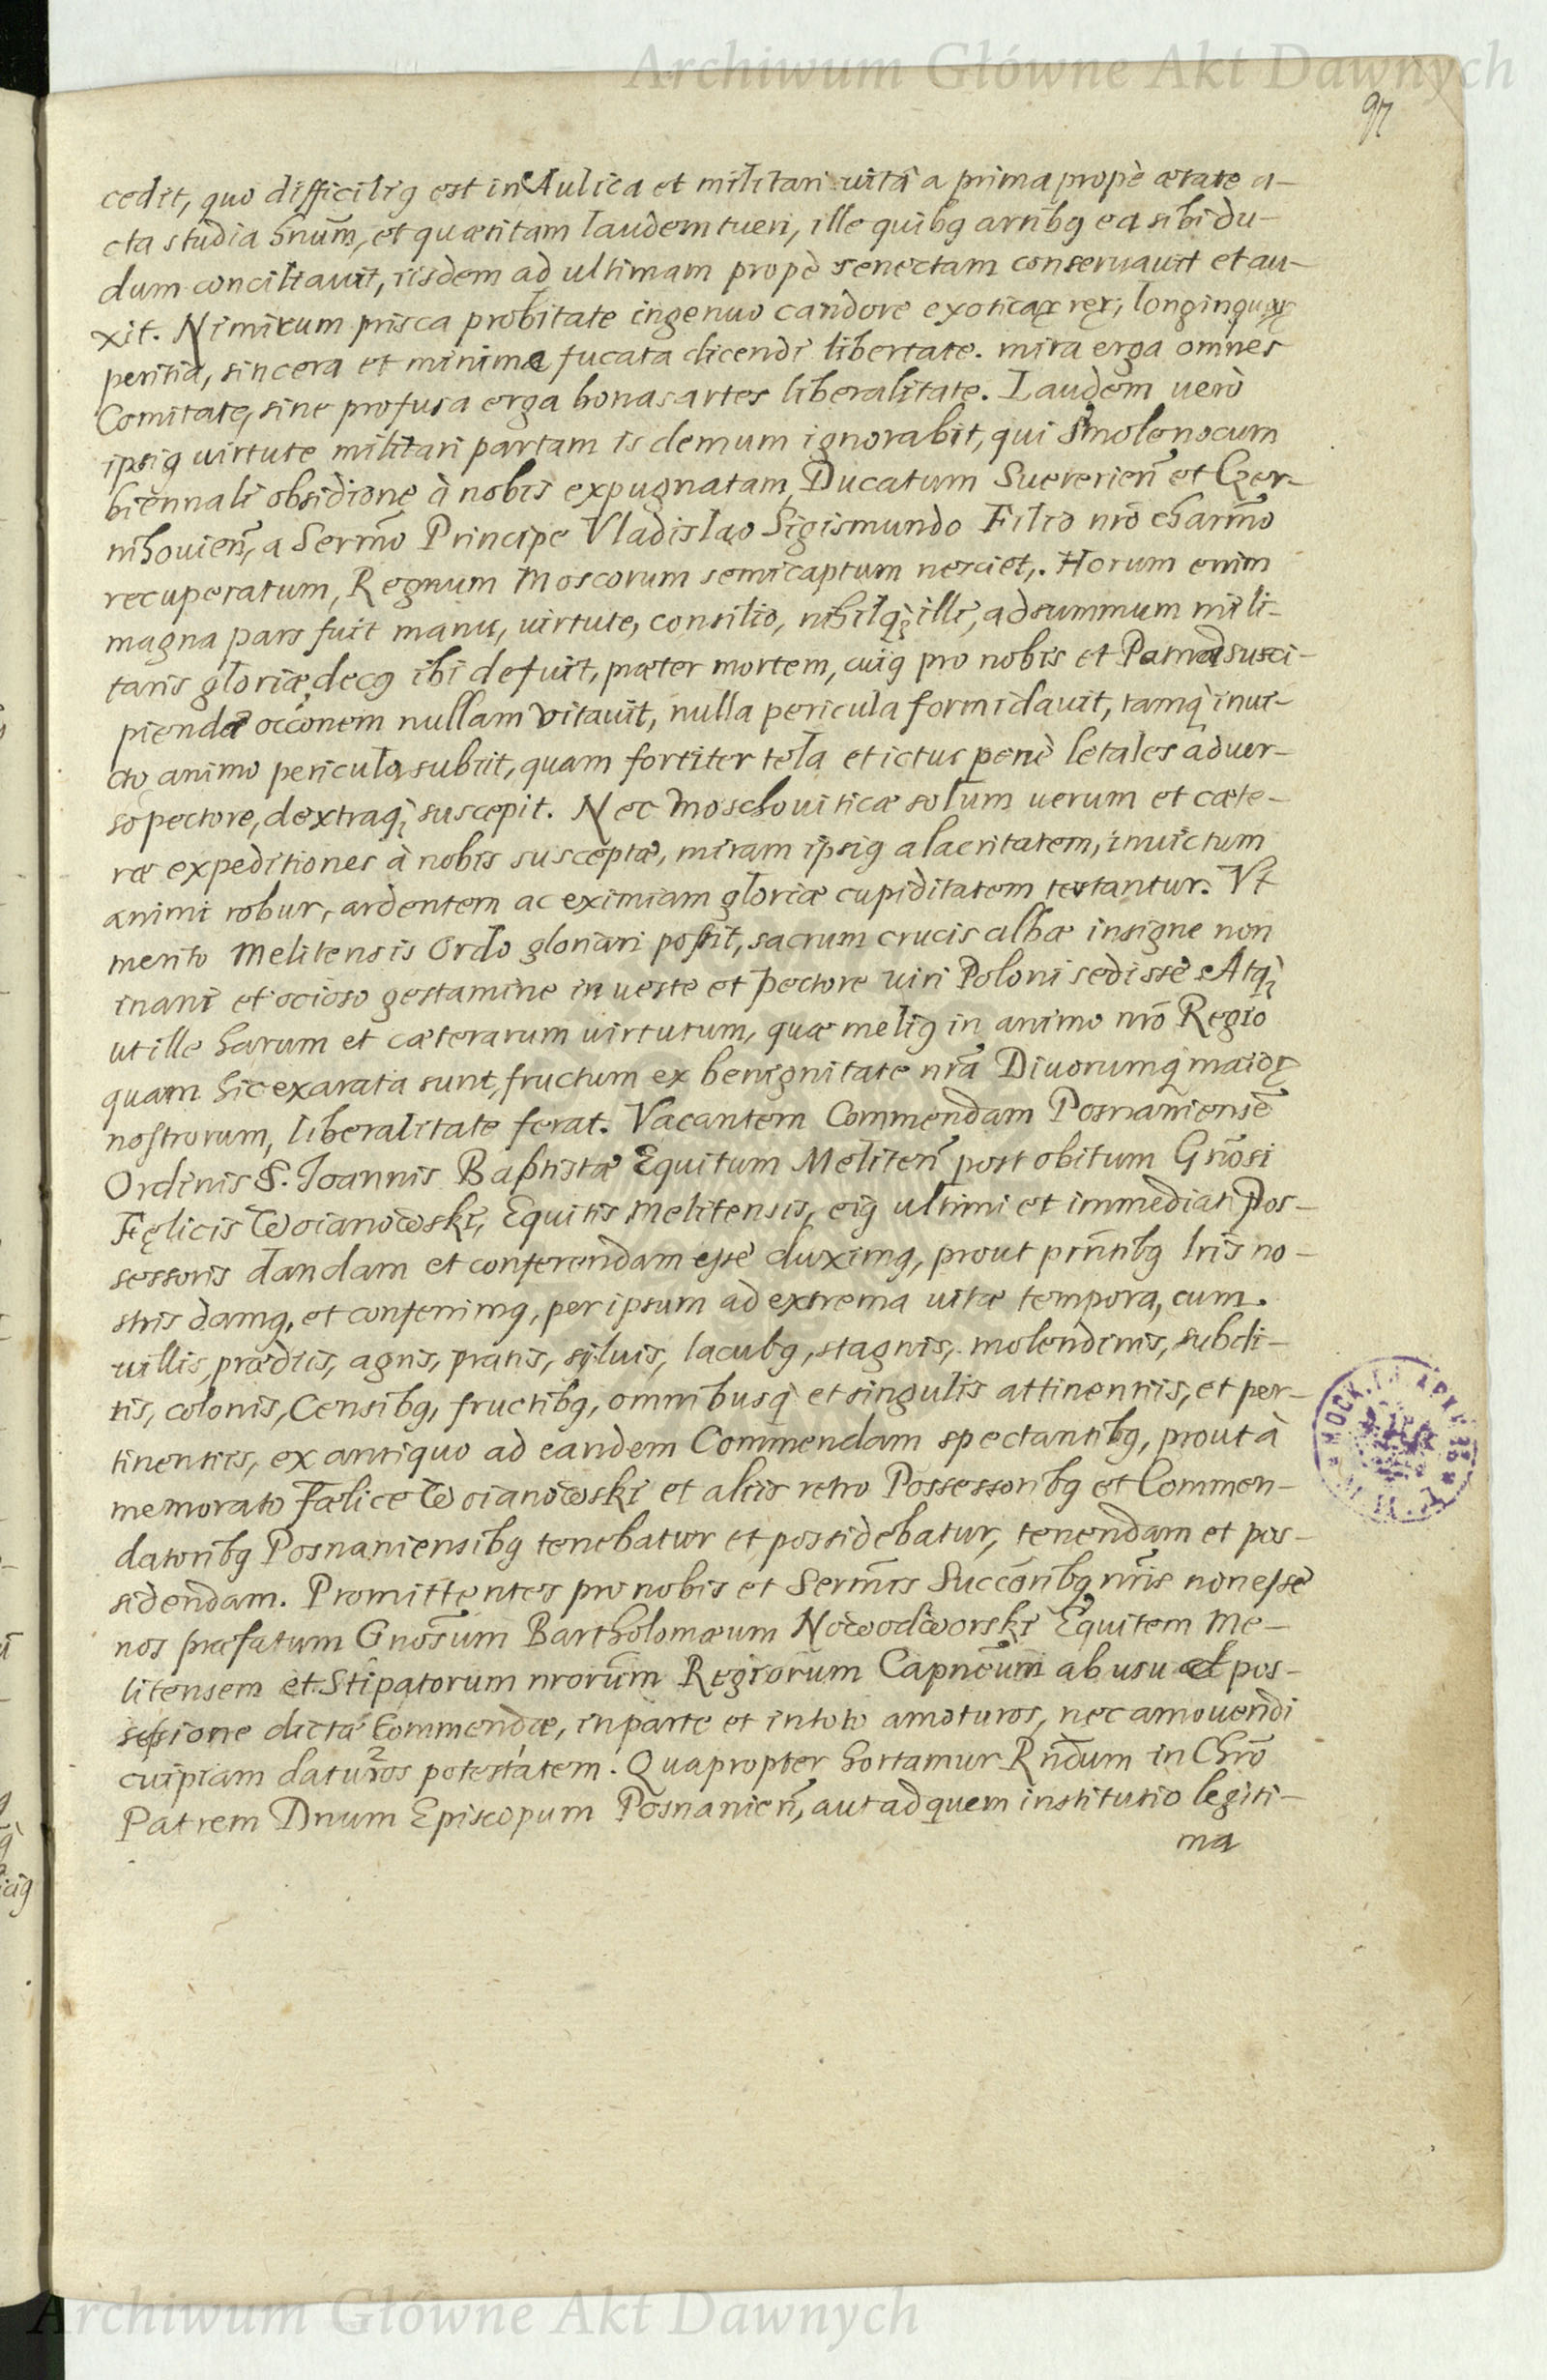 Archiwum Główne Akt Dawnych
97
cedit, quo difficiliꝰ est in Aulica et militari uitâ a prima propè ætate a-
cta studia hnũm, et quæsitam laudem tueri, ille quibꝰ artibꝰ ea sibi du-
dum conciliauit, iisdem ad ultimam propè senectam conseruauit et au-
xit. Nimirum prisca probitate ingenuo candore exoticaꝝ reꝝ, longinquaꝝ
peritia, sincera et minime fucata dicendi libertate. mira erga omnes
Comitate, sine profusa erga bonas artes liberalitate. Laudem uerò
ipsiꝰ uirtute militari partam is demum ignorabit, qui Smolenscum
biennali obsidione à nobis expugnatam, Ducatum Sueuerień et Czer-
nihouień, a Sermõ Principe Vladislao Sigismundo Filio nrõ charmõ
recuperatum, Regnum Moscorum semicaptum nesciet,. Horum enim
magna pars fuit manu, uirtute, consilio, nihilqꝫ illi, ad summum mili-
taris gloriæ decꝰ ibi defuit, præter mortem, cuiꝰ pro nobis et Patria susci-
piendæ occõnem nullam vitauit, nulla pericula formidauit, tamqꝫ inui-
cto animo pericula subiit, quam fortiter tela et ictus penè letales aduer-
so pectore, dextraqꝫ suscepit. Nec Moschouiticæ solum uerum et cæte-
ræ expeditiones à nobis susceptæ, miram ipsiꝰ alacritatem, inuictum
animi robur, ardentem ac eximiam gloriæ cupiditatem testantur. Vt
merito Melitensis Ordo gloriari possit, sacrum crucis albæ insigne non
inani et ocioso gestamine in ueste et pectore uiri Poloni sedisse Atqꝫ
ut ille harum et cæterarum uirtutum, quæ meliꝰ in animo nrõ Regio
quam hic exarata sunt, fructum ex benignitate nrã Diuorumqꝫ maioꝝ
nostrorum, liberalitate ferat. Vacantem Commendam Posnaniensẽ
Ordinis S. Joannis Baptistæ Equitum Meliteń post obitum Gnõsi
Fęlicis Woianowski, Equitis Melitensis, eiꝰ ultimi et immediati Pos-
sessoris dandam et conferendam esse duximꝰ, prout prñtibꝰ lris no-
stris damꝰ, et conferimꝰ, per ipsum ad extrema uitæ tempora, cum
uillis, prædiis, agris, pratis, syluis, lacubꝰ, stagnis, molendinis, subdi-
tis, colonis, Censibꝰ, fructibꝰ, omnibusqꝫ et singulis attinentiis, et per-
tinentiis, ex antiquo ad eandem Commendam spectantibꝰ, prout à
memorato Fælice Woianowski et aliis retro Possessoribꝰ et Commen-
datoribꝰ Posnaniensibꝰ tenebatur et possidebatur, tenendam et pos-
sidendam. Promittentes pro nobis et Sermis Succõribꝰ nris non esse
nos præfatum Gnõsum Bartholomæum Nowodworski Equitem Me-
litensem et Stipatorum nrorũm Regiorum Capneũm ab usu et pos-
sessione dictæ Commendæ, in parte et in toto amoturos, nec amouendi
cuipiam daturos potestatem. Quapropter hortamur Rñdum in Chrõ
Patrem Dnum Episcopum Posnanień, aut ad quem institutio legiti-
ma
Archiwum Główne Akt Dawnych